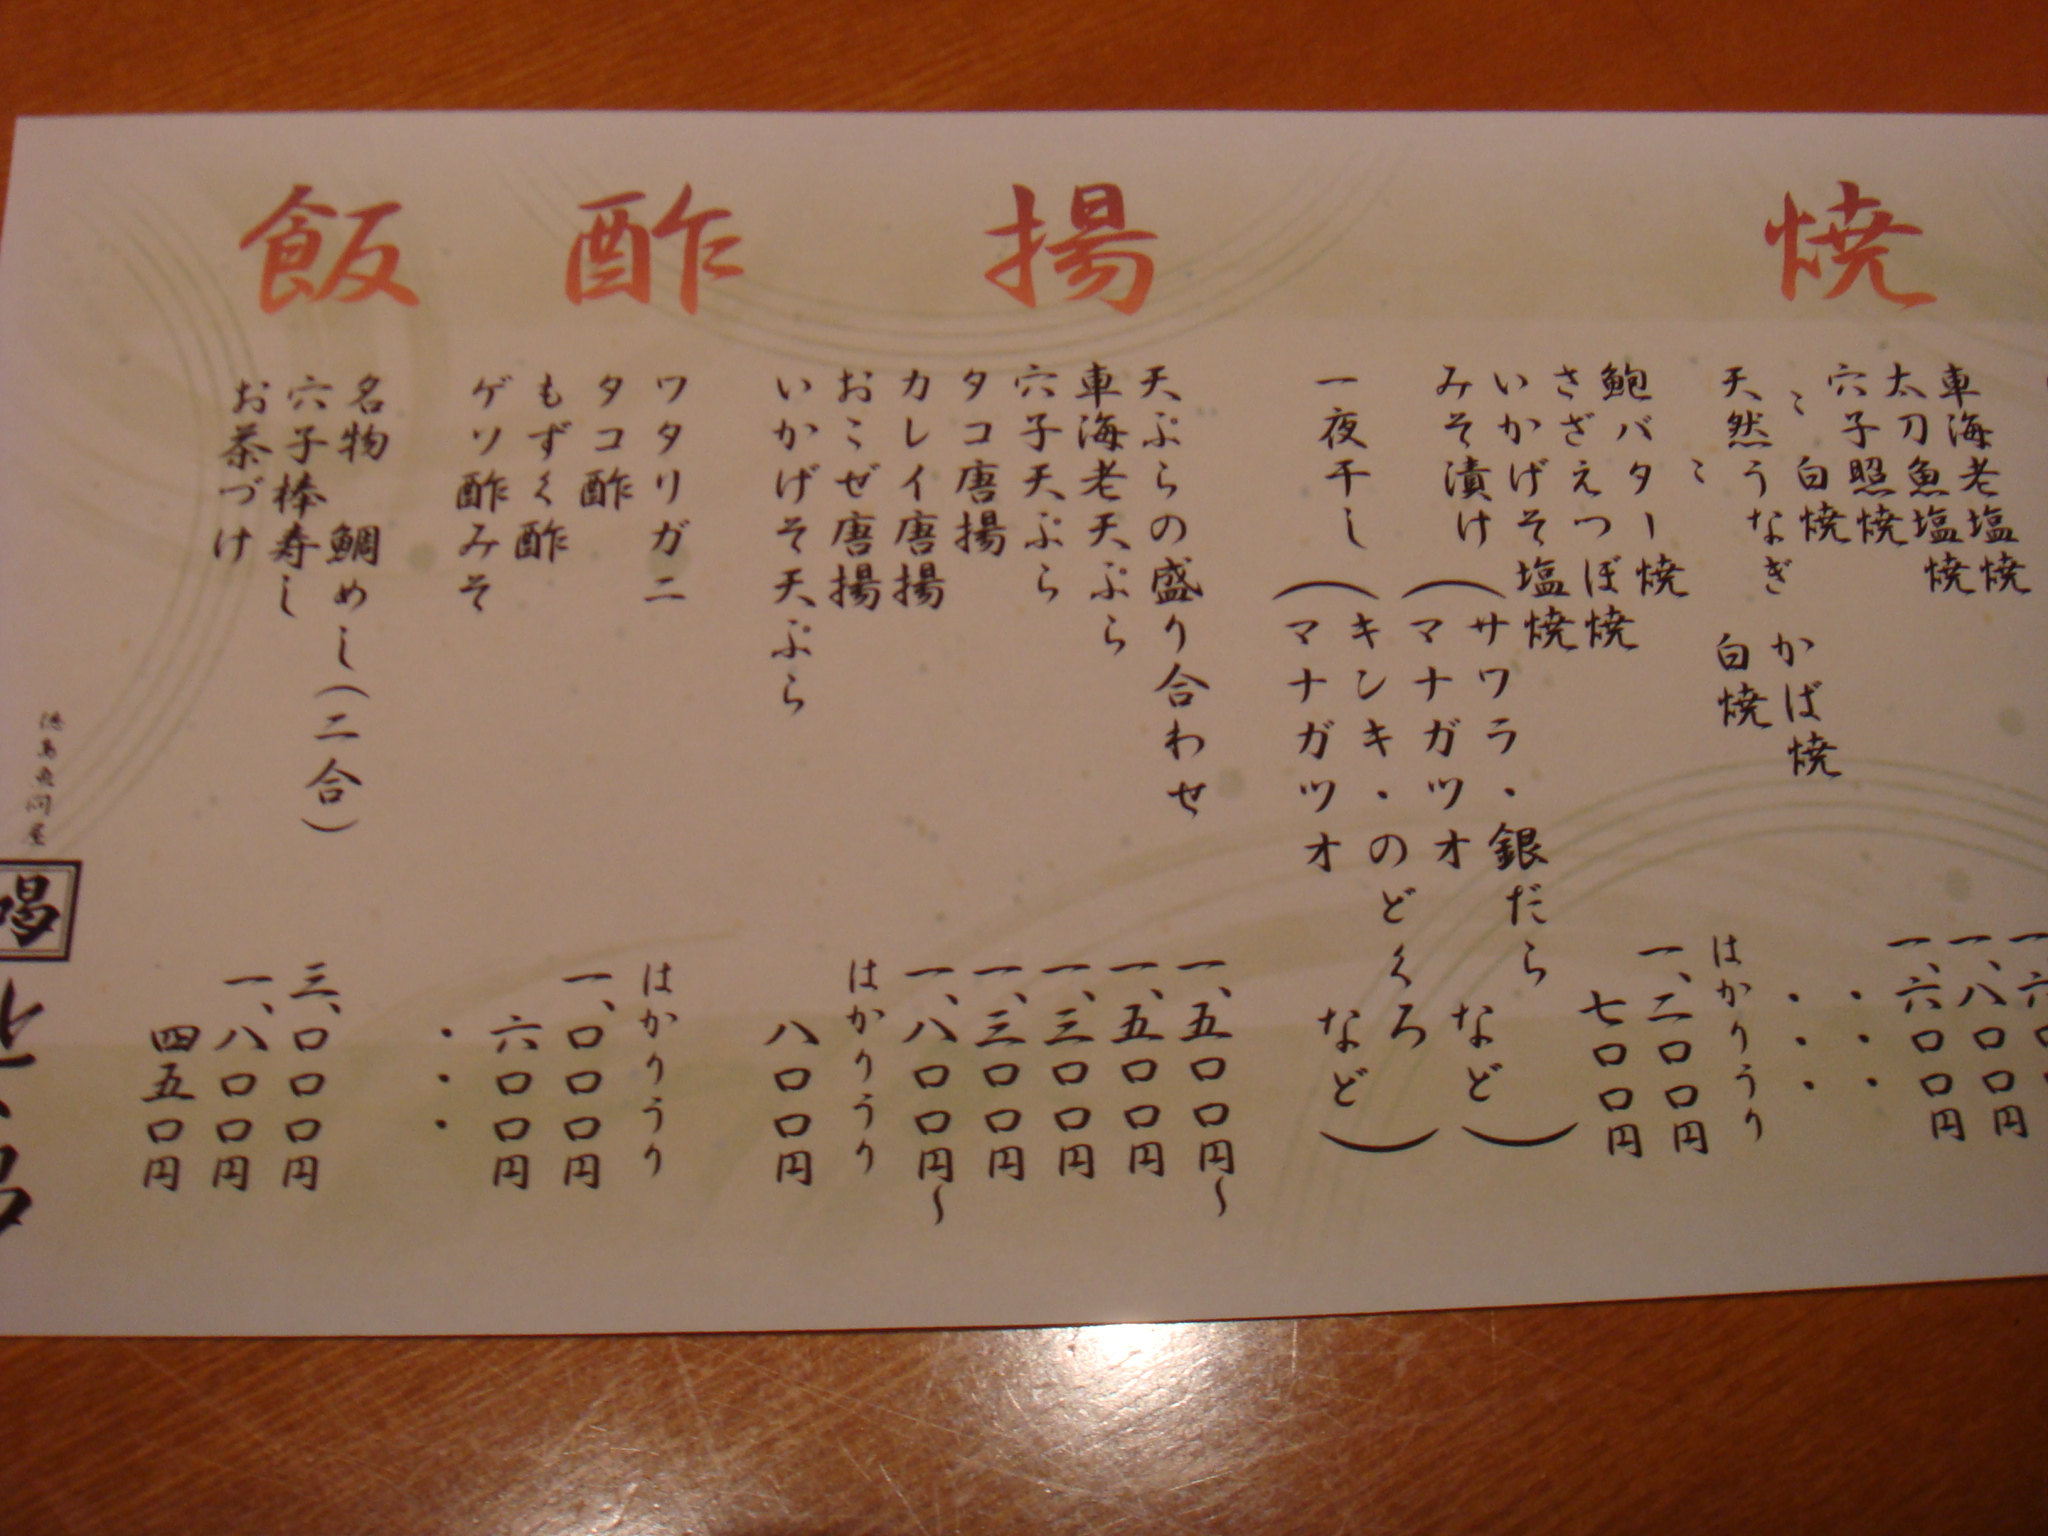 焼
車海老塩焼
太刀魚塩焼
穴子照焼
〃 白焼
天然うなぎ かば焼
〃 白焼
鮑バター焼
さざえつぼ焼
いかげそ塩焼
みそ漬け(サワラ・銀だら
マナガツオ など)
一夜干し(キンキ・のどくろ
マナガツオ など)
一、八〇〇円
一、六〇〇円
・・・
・・・
はかりうり
一、二〇〇円
七〇〇円
揚
天ぷらの盛り合わせ
車海老天ぷら
穴子天ぷら
タコ唐揚
カレイ唐揚
おこぜ唐揚
いかげそ天ぷら
一、五〇〇円〜
一、五〇〇円
一、三〇〇円
一、三〇〇円
一、八〇〇円〜
はかりうり
八〇〇円
酢
ワタリガニ
タコ酢
もずく酢
ゲソ酢みそ
はかりうり
一、〇〇〇円
六〇〇円
・・・
飯
名物 鯛めし(二合)
穴子棒寿し
お茶づけ
三、〇〇〇円
一、八〇〇円
四五〇円
徳島魚問屋